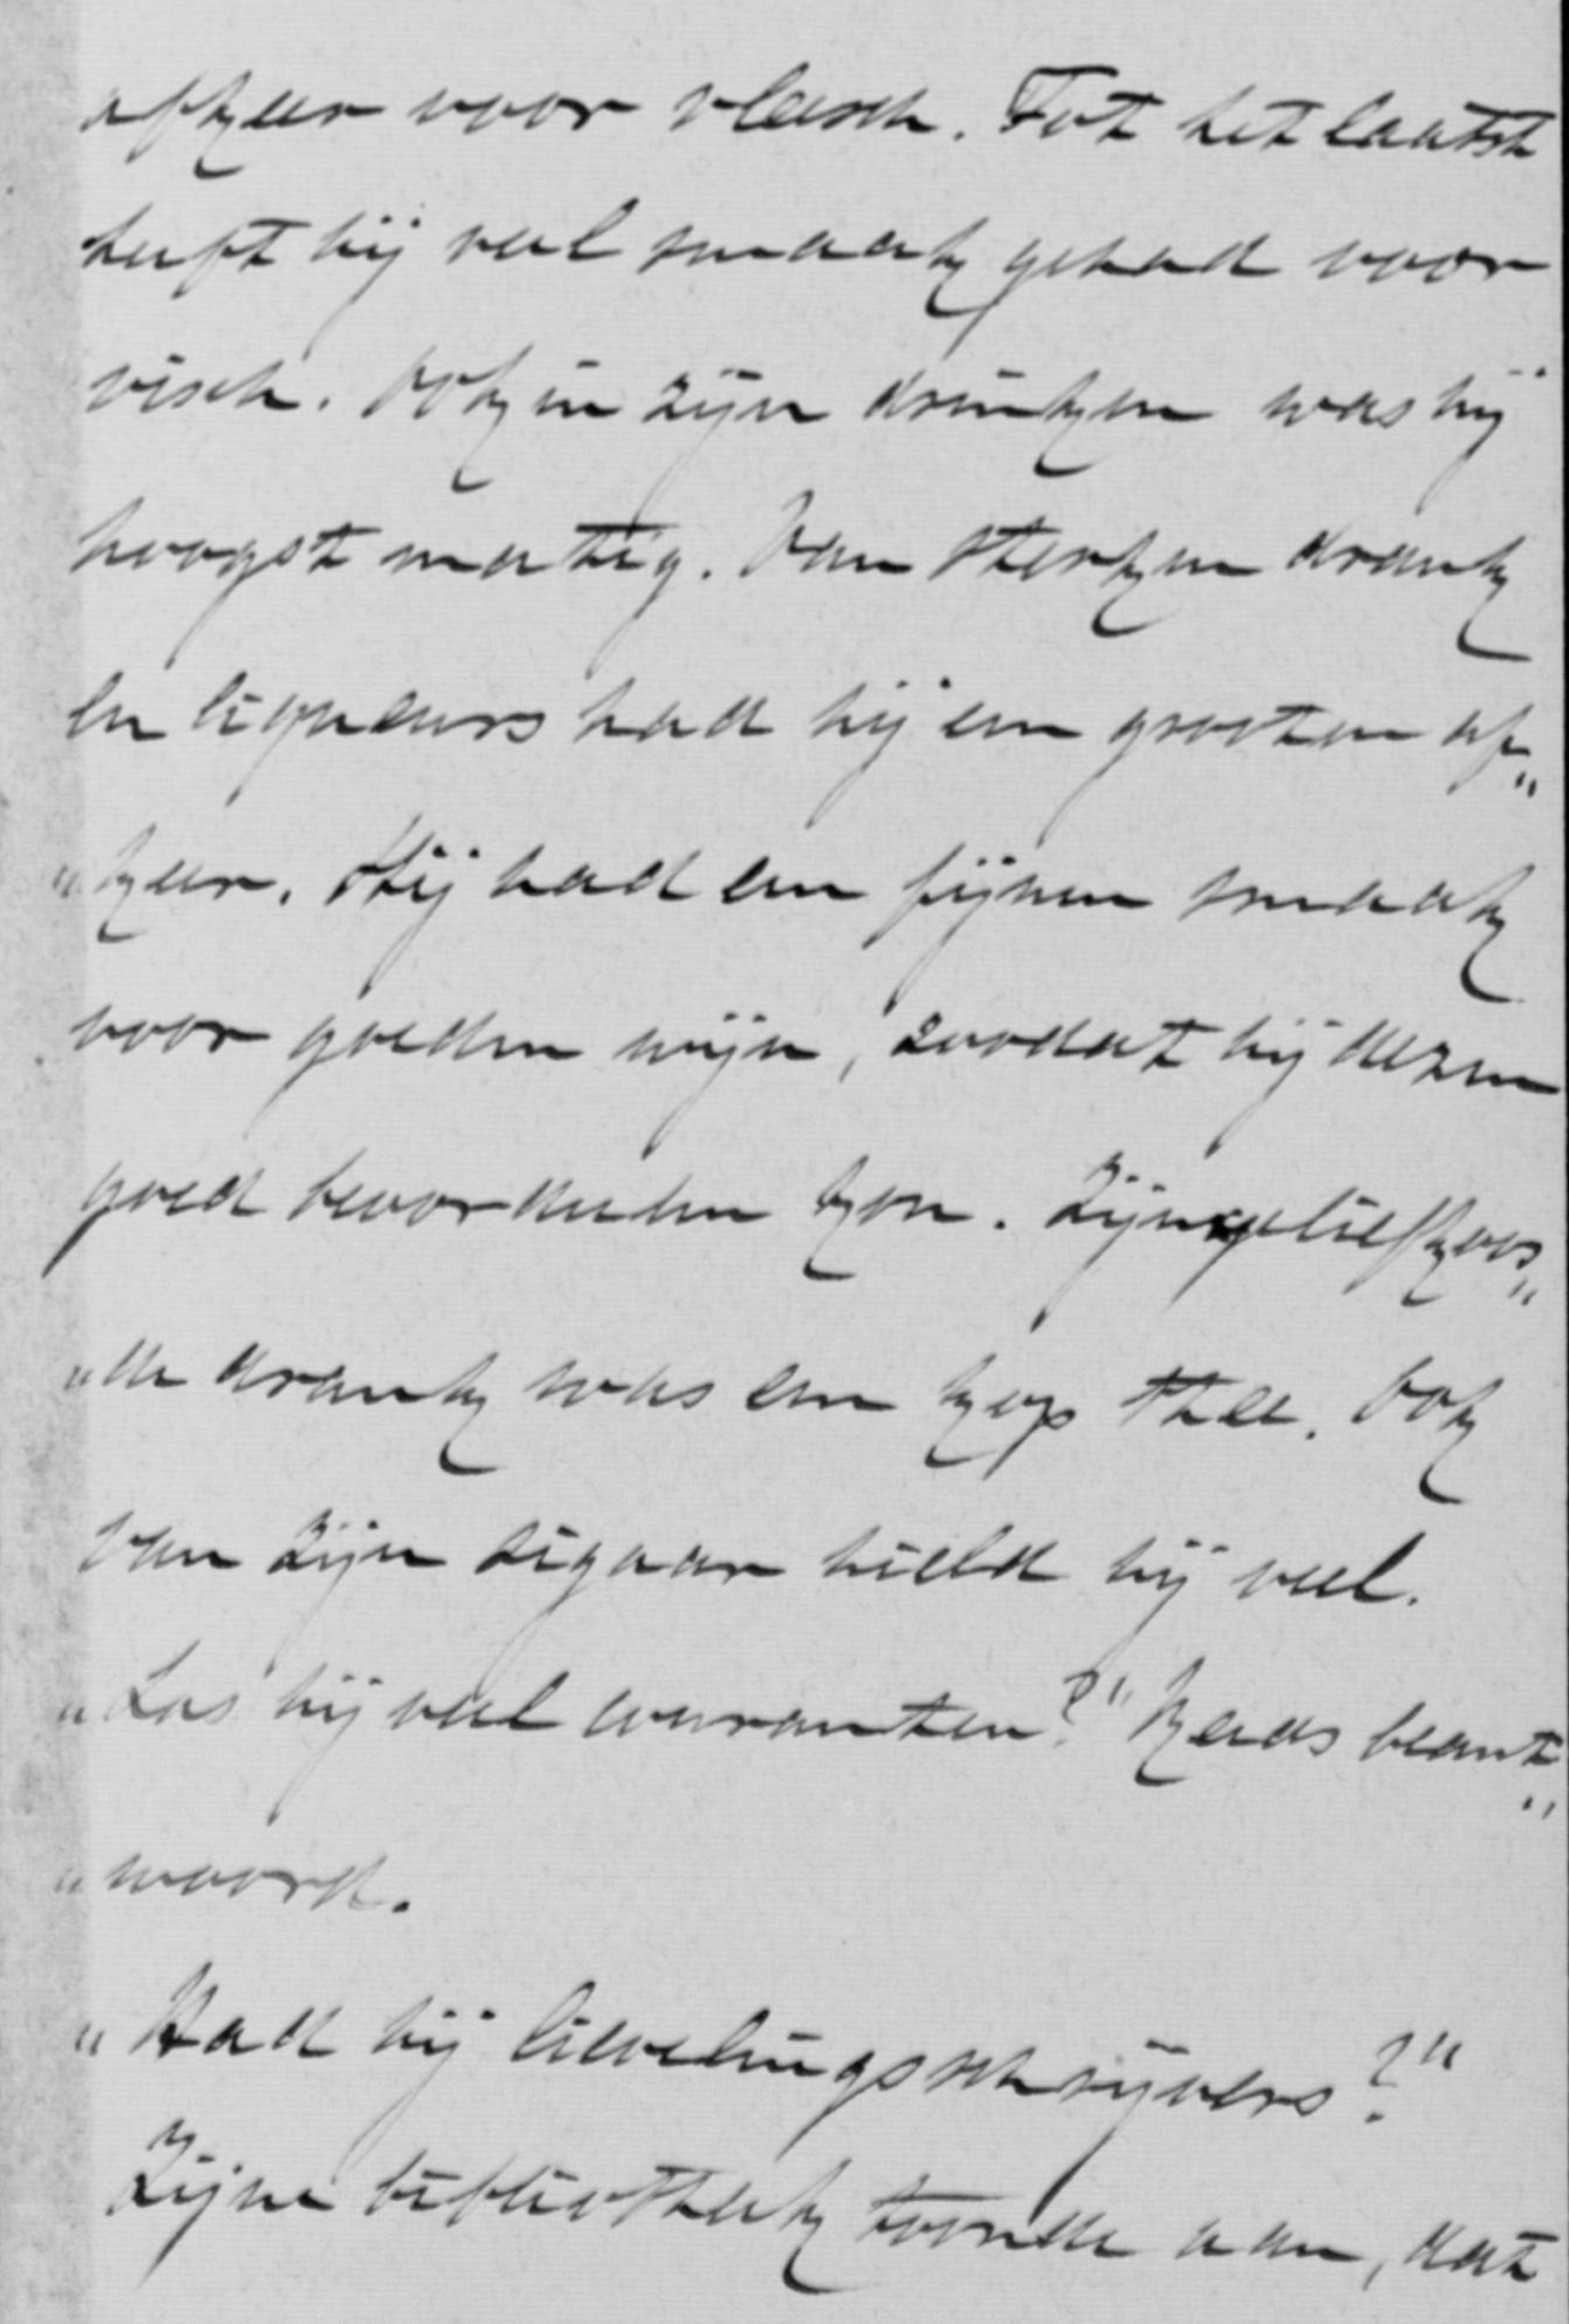 afkeer voor vleesch. Tot het laatst
heeft hij veel smaak gehad voor
visch. Ook in zijn drinken was hij
hoogst matig. Van sterken drank
en liqueurs had hij een grooten af„
„keer. Hij had een fijnen smaak
voor goeden wijn, zoodat hij dezen
goed beoordeelen kon. Zijn geliefkoos„
„de drank was een kop thee. Ook
van zijn sigaar hield hij veel.
„Las hij veel couranten?" Reeds beant„
„woord.
„Had hij lievelingsschrijvers?"
Zijne bibliotheek toonde aan, dat